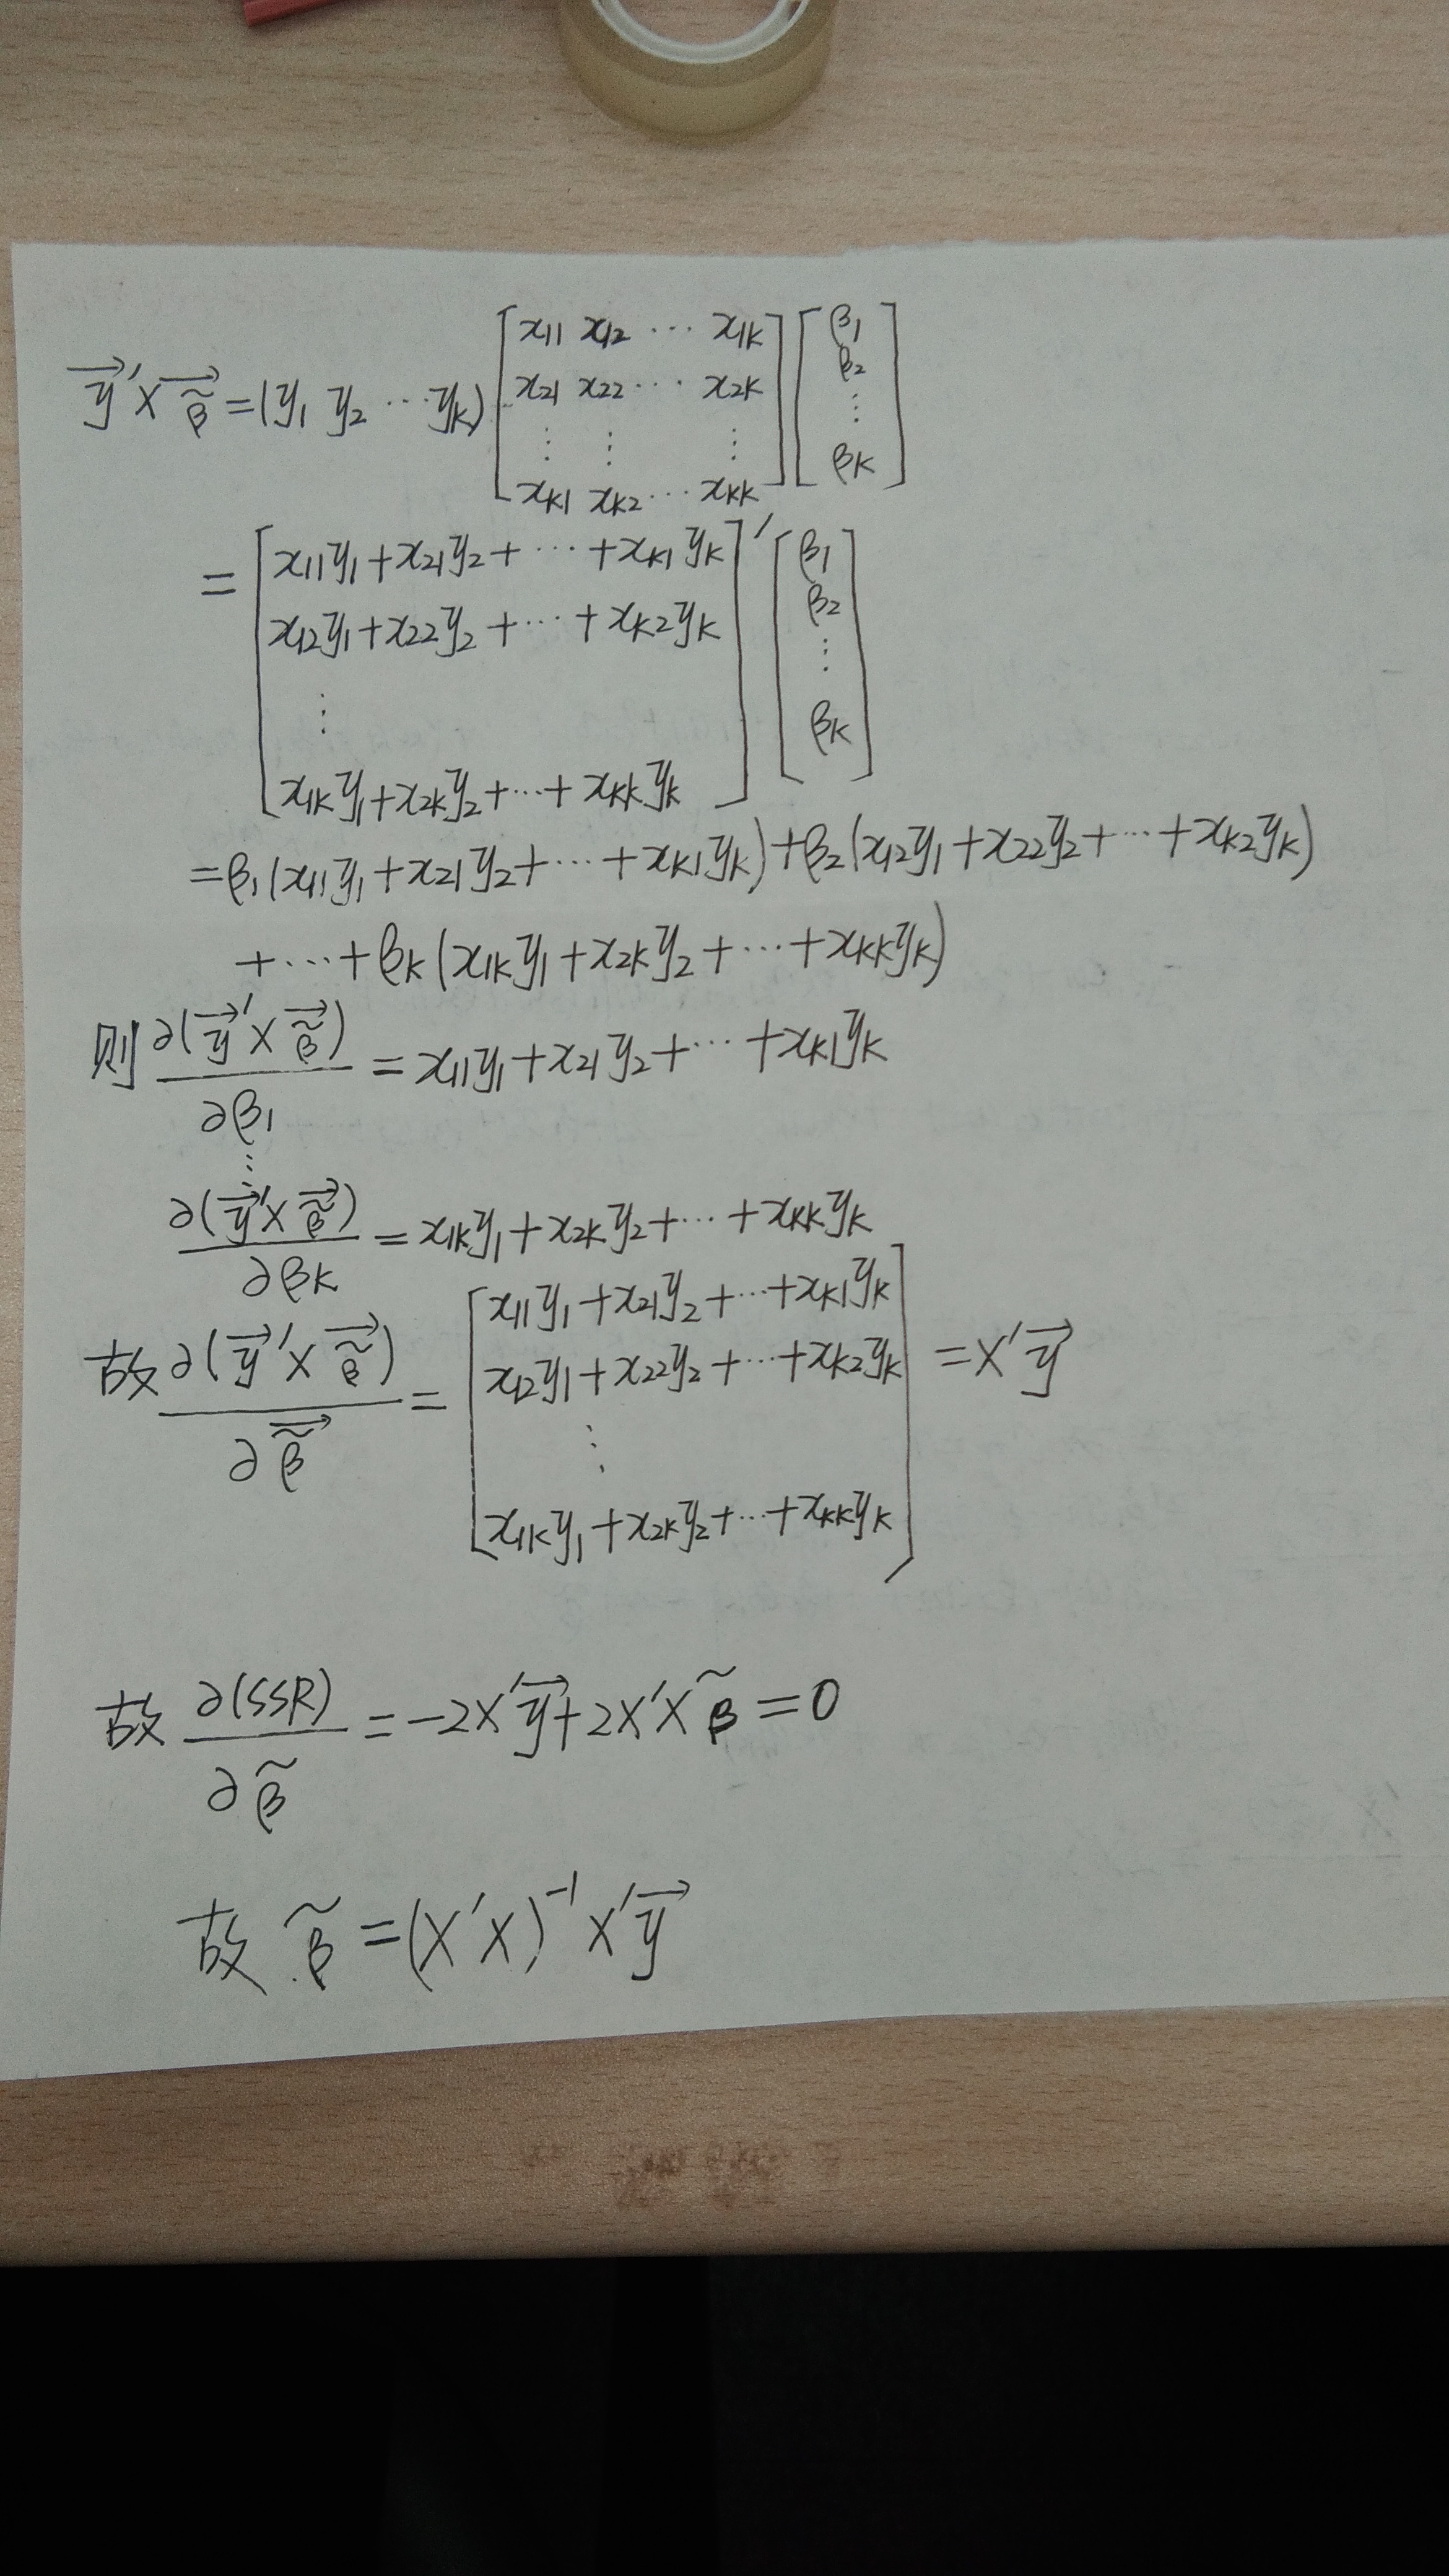 $\overrightarrow{y}' X \overrightarrow{\tilde{\beta}} = (y_1 \ y_2 \cdots y_K) \begin{bmatrix} x_{11} & x_{12} & \cdots & x_{1K} \\ x_{21} & x_{22} & \cdots & x_{2K} \\ \vdots & \vdots & & \vdots \\ x_{K1} & x_{K2} & \cdots & x_{KK} \end{bmatrix} \begin{bmatrix} \beta_1 \\ \beta_2 \\ \vdots \\ \beta_K \end{bmatrix}$
$= \begin{bmatrix} x_{11}y_1 + x_{21}y_2 + \cdots + x_{K1}y_K \\ x_{12}y_1 + x_{22}y_2 + \cdots + x_{K2}y_K \\ \vdots \\ x_{1K}y_1 + x_{2K}y_2 + \cdots + x_{KK}y_K \end{bmatrix}' \begin{bmatrix} \beta_1 \\ \beta_2 \\ \vdots \\ \beta_K \end{bmatrix}$
$= \beta_1(x_{11}y_1 + x_{21}y_2 + \cdots + x_{K1}y_K) + \beta_2(x_{12}y_1 + x_{22}y_2 + \cdots + x_{K2}y_K)$
$+ \cdots + \beta_K(x_{1K}y_1 + x_{2K}y_2 + \cdots + x_{KK}y_K)$
则 $\frac{\partial(\overrightarrow{y}' X \overrightarrow{\tilde{\beta}})}{\partial \beta_1} = x_{11}y_1 + x_{21}y_2 + \cdots + x_{K1}y_K$
$\vdots$
$\frac{\partial(\overrightarrow{y}' X \overrightarrow{\tilde{\beta}})}{\partial \beta_K} = x_{1K}y_1 + x_{2K}y_2 + \cdots + x_{KK}y_K$
故 $\frac{\partial(\overrightarrow{y}' X \overrightarrow{\tilde{\beta}})}{\partial \overrightarrow{\tilde{\beta}}} = \begin{bmatrix} x_{11}y_1 + x_{21}y_2 + \cdots + x_{K1}y_K \\ x_{12}y_1 + x_{22}y_2 + \cdots + x_{K2}y_K \\ \vdots \\ x_{1K}y_1 + x_{2K}y_2 + \cdots + x_{KK}y_K \end{bmatrix} = X'\overrightarrow{y}$
故 $\frac{\partial(SSR)}{\partial \tilde{\beta}} = -2X'\overrightarrow{y} + 2X'X\tilde{\beta} = 0$
故 $\tilde{\beta} = (X'X)^{-1}X'\overrightarrow{y}$